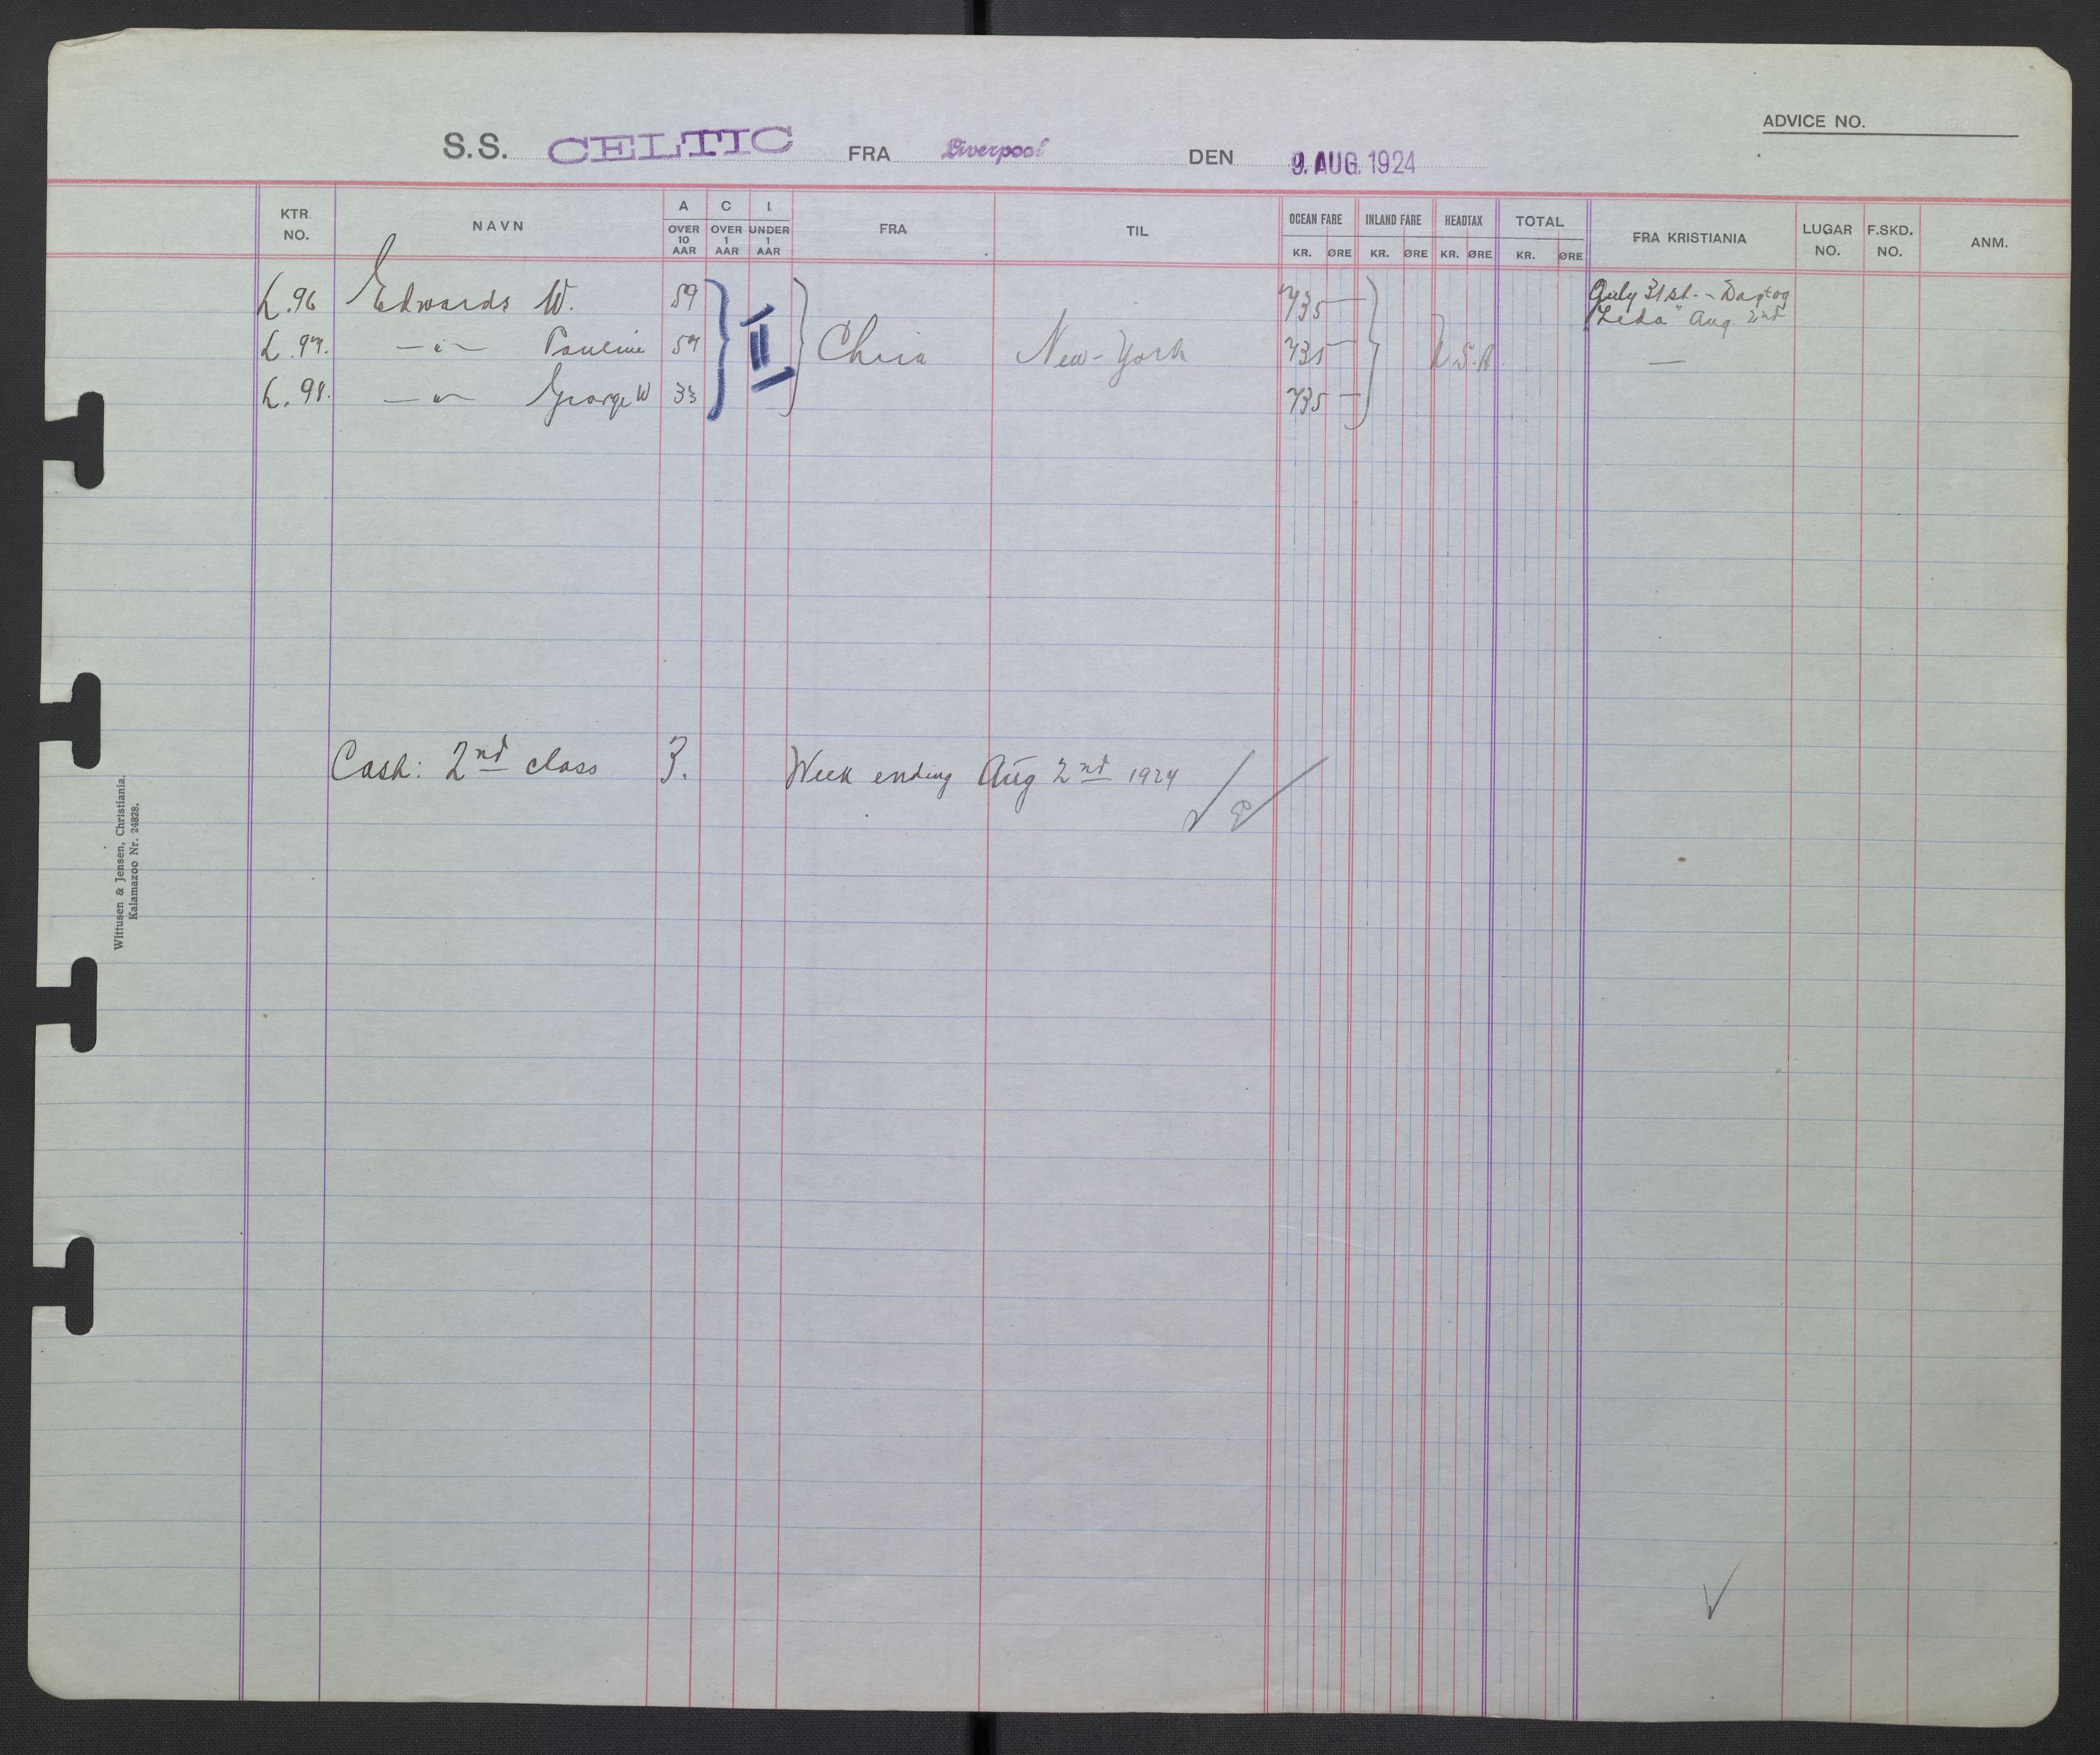 ADVICE NO.
S.S. CELTIC FRA Liverpool DEN 9. AUG. 1924
KTR. NO. NAVN A OVER 10 AAR C OVER 1 AAR I UNDER 1 AAR FRA TIL OCEAN FARE KR. ØRE INLAND FARE KR. ØRE HEADTAX KR. ØRE TOTAL KR. ØRE FRA KRISTIANIA LUGAR NO. F.SKD. NO. ANM.
L. 96 Edwards W. 59 735 — July 31st. - Dagtog
"Leda" Aug. 2nd
L. 97. — " — Pauline 59 II Chria New-York 735 — U.S.A. —
L. 98. — " — George W 33 735 —
Cash: 2nd class 3. Week ending Aug 2nd 1924
Wittusen & Jensen, Christiania.
Kalamazoo Nr. 24828.